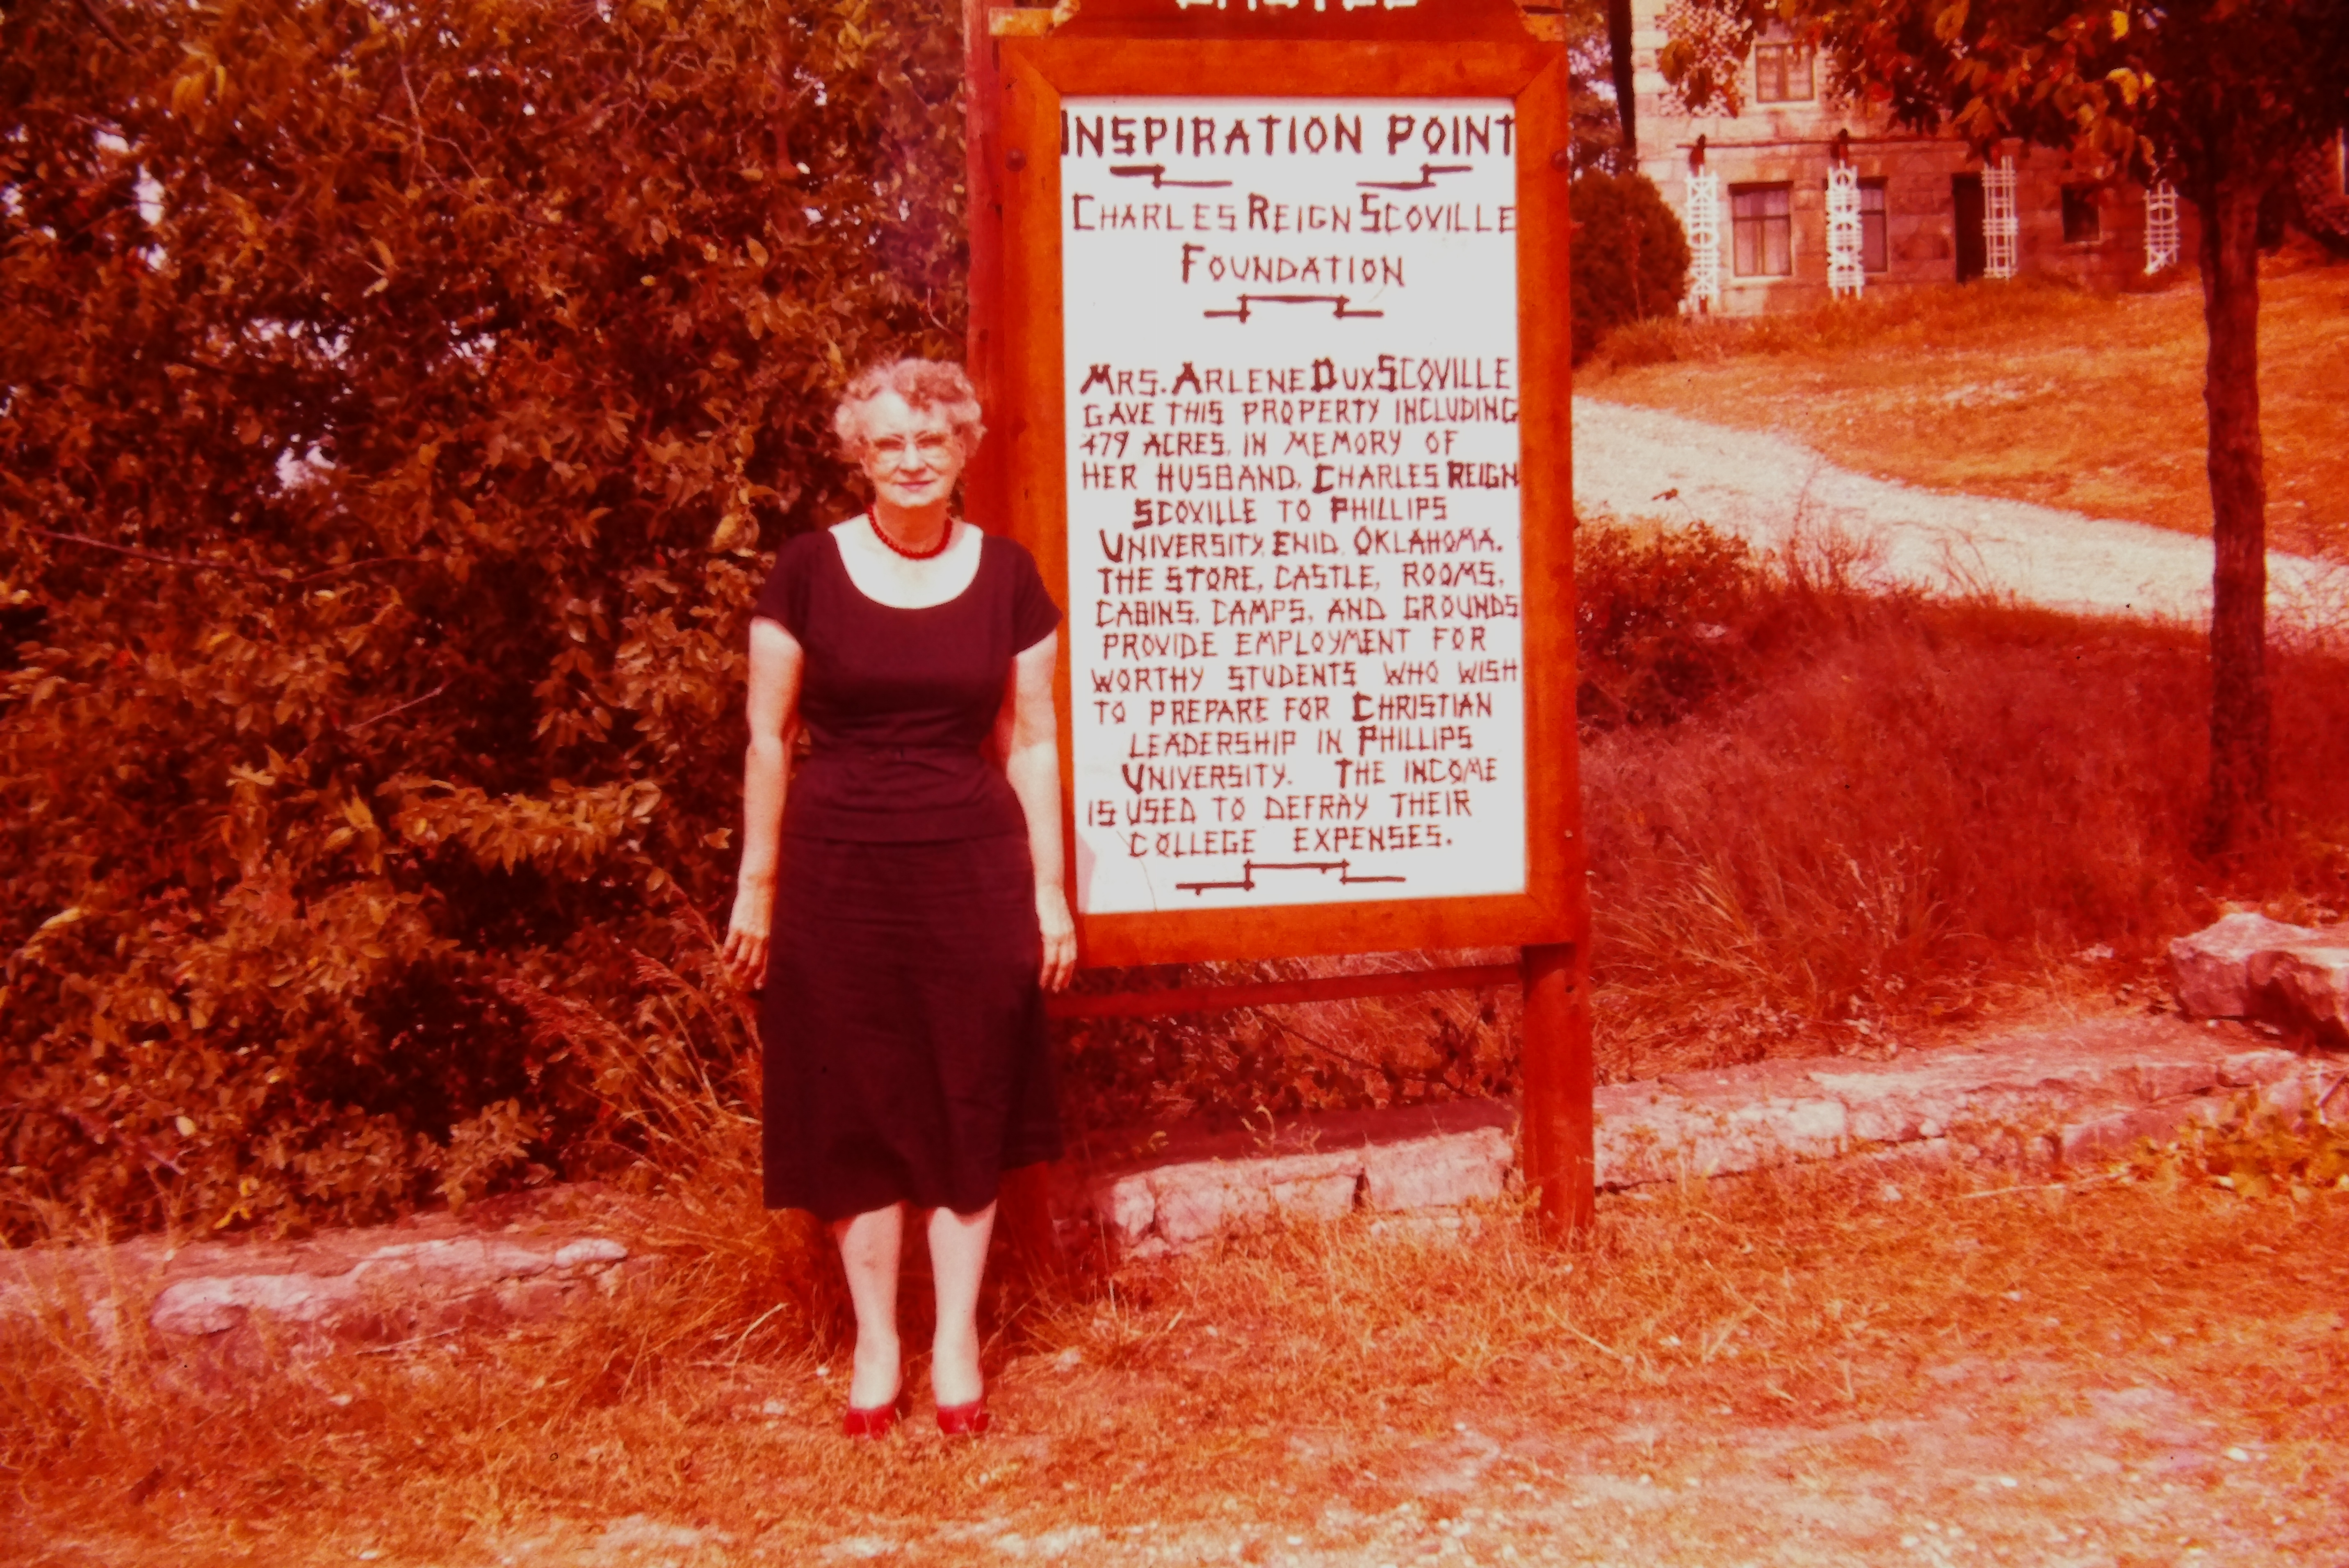 CASTLE
INSPIRATION POINT
CHARLES REIGN SCOVILLE
FOUNDATION
MRS. ARLENE DUX SCOVILLE
GAVE THIS PROPERTY INCLUDING
479 ACRES, IN MEMORY OF
HER HUSBAND, CHARLES REIGN
SCOVILLE TO PHILLIPS
UNIVERSITY, ENID, OKLAHOMA.
THE STORE, CASTLE, ROOMS,
CABINS, CAMPS, AND GROUNDS
PROVIDE EMPLOYMENT FOR
WORTHY STUDENTS WHO WISH
TO PREPARE FOR CHRISTIAN
LEADERSHIP IN PHILLIPS
UNIVERSITY. THE INCOME
IS USED TO DEFRAY THEIR
COLLEGE EXPENSES.